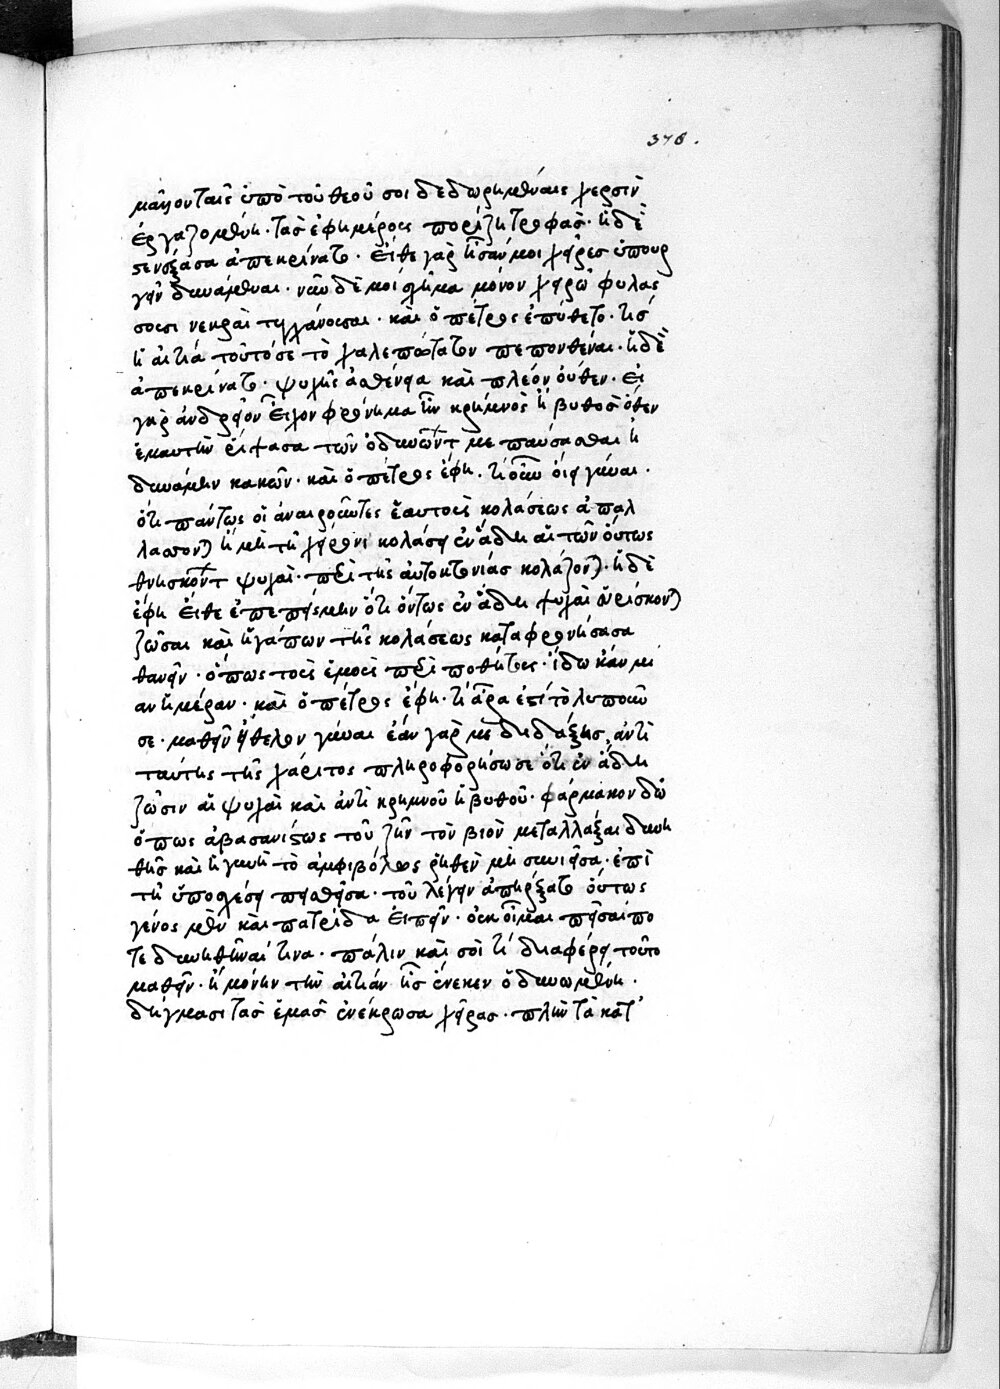 378.
μᾶλλον ταῖς ὑπὸ τοῦ θεοῦ σοι δεδωρημέναις χερσὶν
ἐργαζομένη· τὰσ ἐφημέρους πορίζη τροφὰσ· ἡ δὲ
στενάξασα ἀπεκρίνατο· εἴθε γὰρ ἦσάν μοι χεῖρες ὑπουρ
γεῖν δυνάμεναι· νῦν δὲ μοι σχῆμα μόνον χειρῶν φυλάσ
σουσι νεκραὶ τυγχάνουσαι· καὶ ὁ πέτρος ἐπύθετο· τίσ
ἡ αἰτία τοῦτό σε τὸ χαλεπώτατον πεπονθέναι· ἡ δὲ
ἀπεκρίνατο· ψυχῆς ἀσθένεια καὶ πλέον οὐθεν· εἰ
γὰρ ἀνδρεῖον εἶχον φρόνημα ἦν κρημνὸς ἢ βυθὸσ ὅθεν
ἐμαυτὴν ῥίψασα τῶν ὀδυνώντ με παύσασθαι ἠ
δυνάμην κακῶν· καὶ ὁ πέτρος ἔφη· τί οὖν οἴει γύναι·
ὅτι πάντως οἱ ἀναιροῦντες ἑαυτοὺς κολάσεως ἀπαλ
λάσσοντ) ἢ μὴ τῇ χείρονι κολάσει ἐν ἅδῃ αἱ τῶν οὕτως
θνησκόντ ψυχαὶ· περὶ τῆς αὐτοκτονίασ κολάζοντ)· ἡ δὲ
ἔφη εἴθε ἐπεπείσμην ὅτι ὄντως ἐν ἅδῃ ψυχαὶ εὑρίσκοντ)
ζῶσαι καὶ ἠγάπων τῆς κολάσεως καταφρονήσασα
θανεῖν· ὅπως τοὺς ἐμοὺς περιποθήτους· ἴδω κἂν μί
αν ἡμέραν· καὶ ὁ πέτρος ἔφη· τί ἆρα ἐστὶ τὸ λυποῦν
σε· μαθεῖν ἤθελον γύναι ἐάν γάρ με διδάξης, ἀντὶ
ταύτης τῆς χάριτος πληροφορήσω σε ὅτι ἐν ἅδῃ
ζῶσιν αἱ ψυχαὶ καὶ ἀντὶ κρημνοῦ ἢ βυθοῦ· φάρμακον δῶ
ὅπως ἀβασανίστως τοῦ ζῆν τὸν βίον μεταλλάξαι δυνη
θῆς καὶ ἡ γυνὴ τὸ ἀμφιβόλως ῥηθὲν μὴ συνιεῖσα· ἐπὶ
τῇ ὑποσχέσει πεισθεῖσα· τοῦ λέγειν ἀπήρξατο οὕτως
γένος μὲν καὶ πατρίδα εἰπεῖν· οὐκ οἶμαι πεῖσαί πο
τε δυνηθῆναί τινα· πάλιν καὶ σοὶ τί διαφέρει τοῦτο
μαθεῖν· ἢ μόνην τὴν αἰτίαν ἧσ ἕνεκεν ὀδυνωμένη·
δήγμασι τὰσ ἐμὰσ ἐνέκρωσα χεῖρας· πλὴν τὰ κατ'